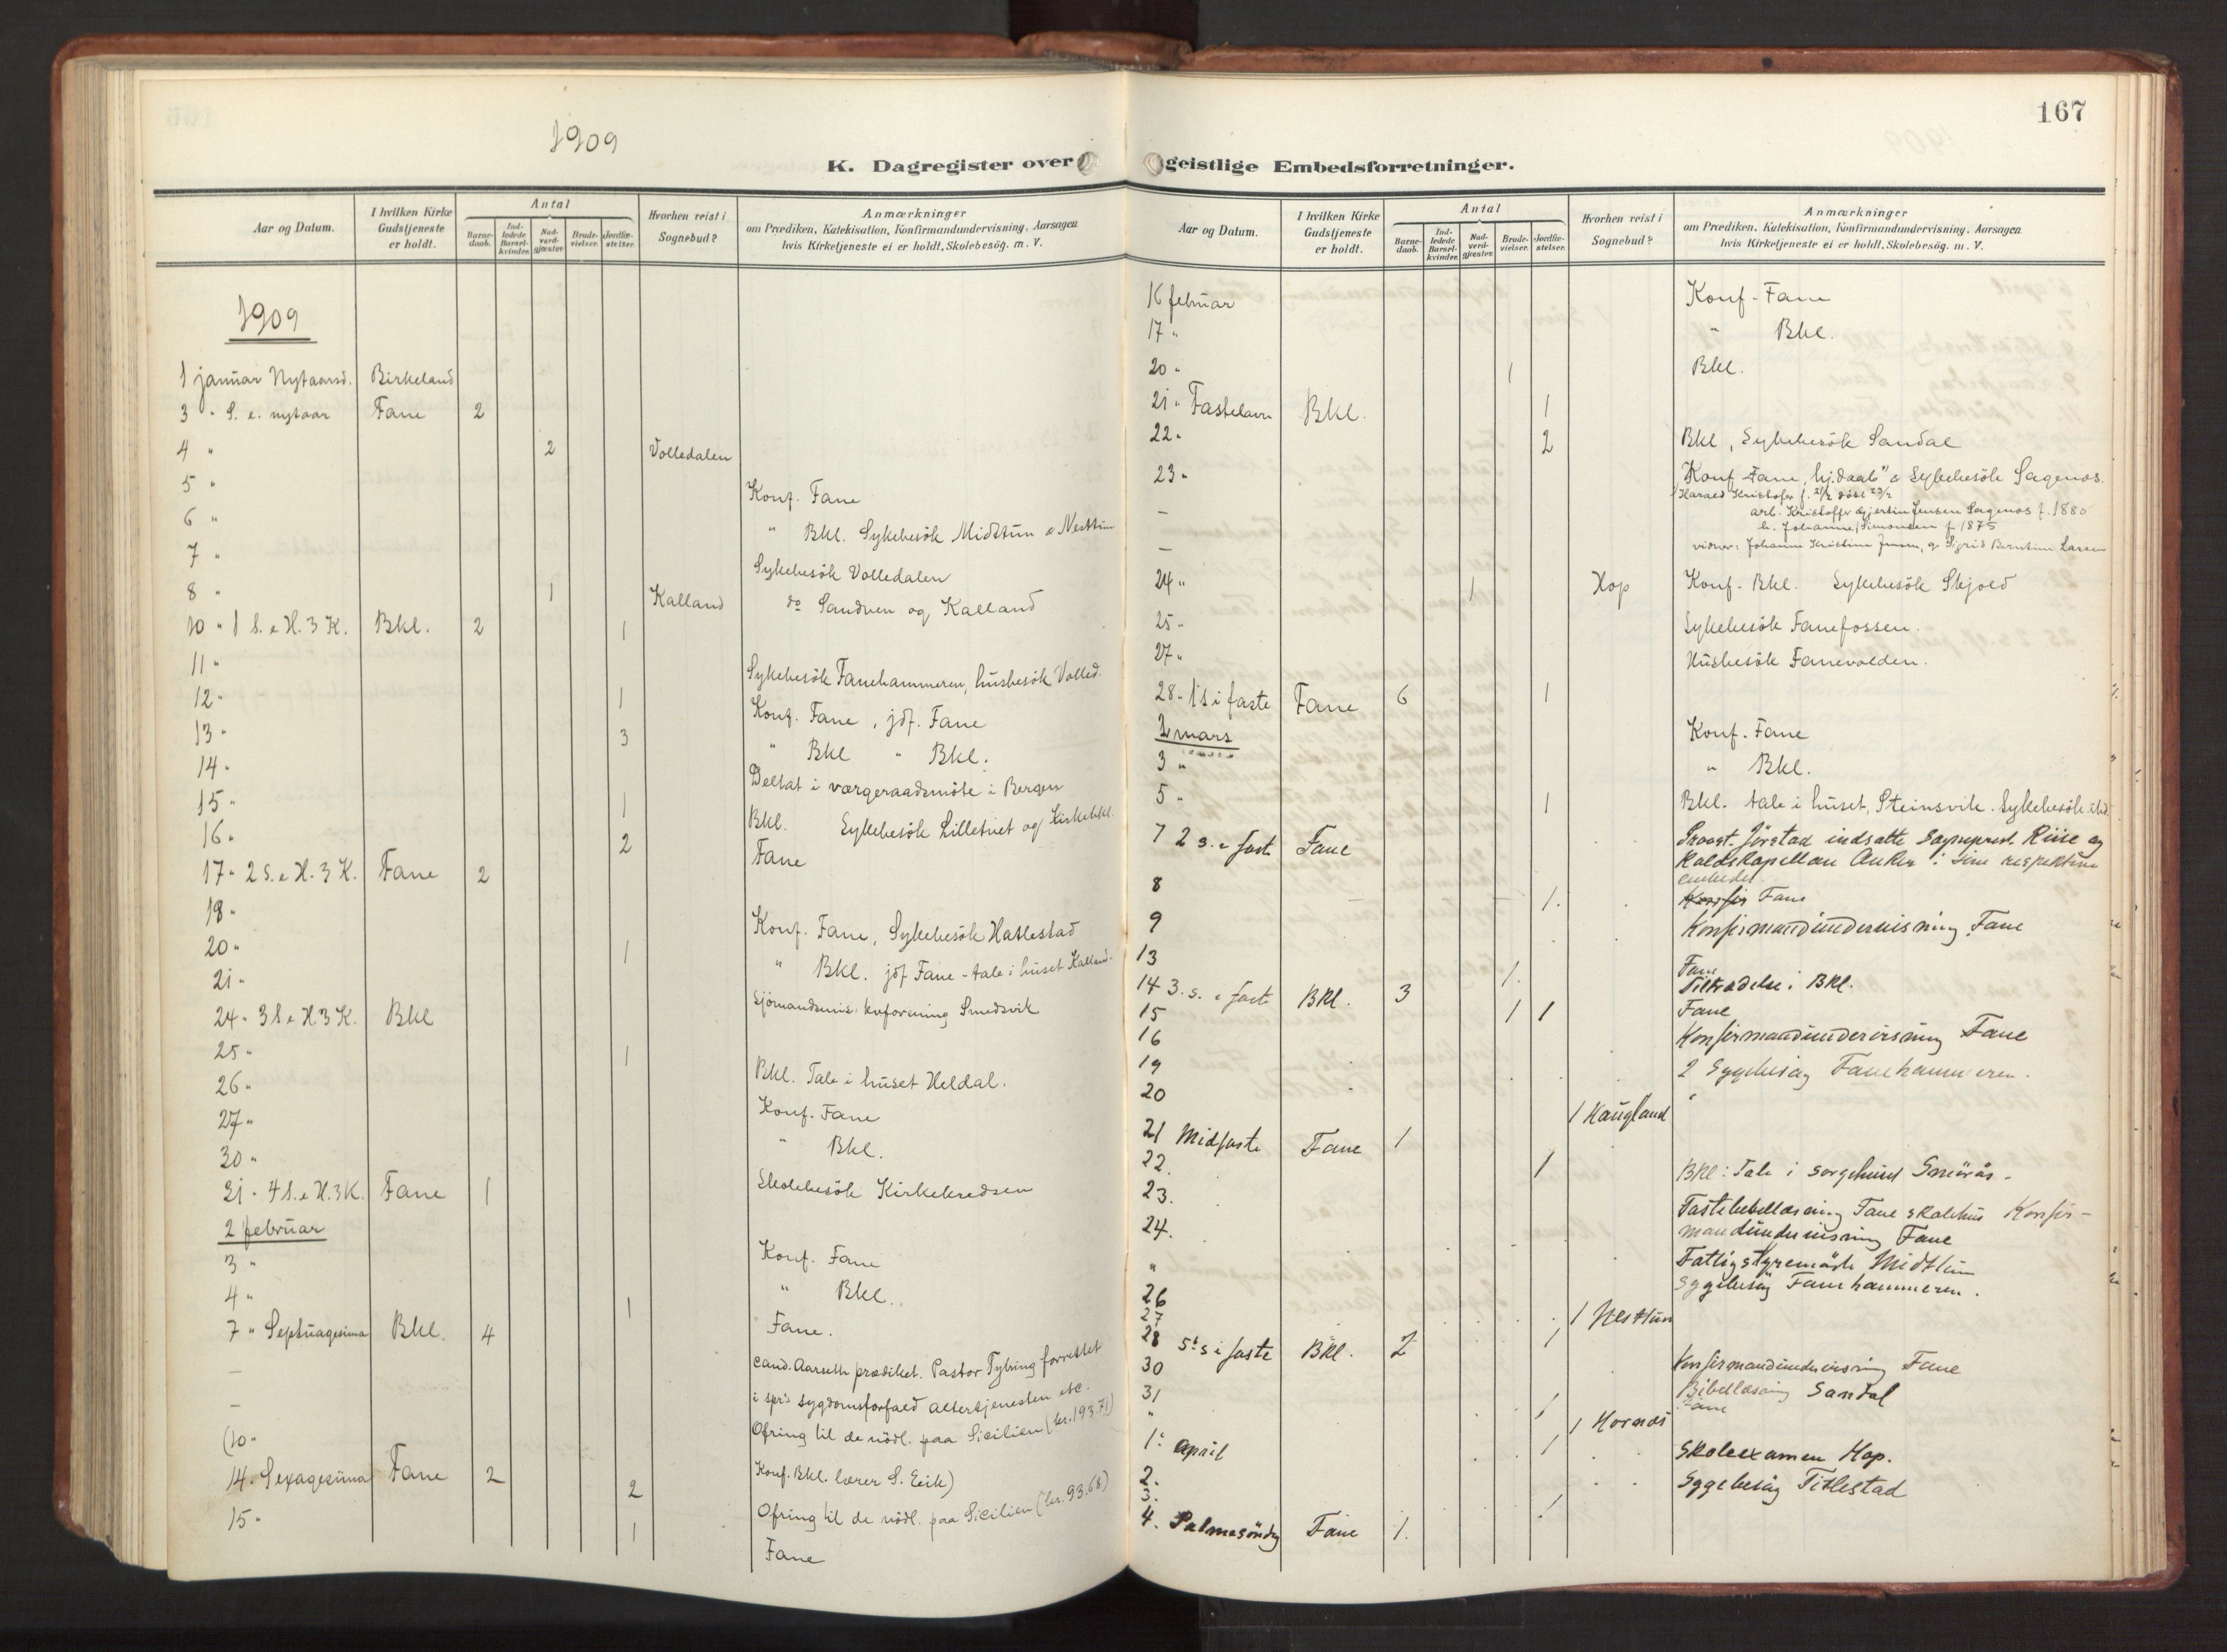 1909
K. Dagregister over
Aar og Datum. I hvilken Kirke Gudstjeneste er holdt. Antal Barnedaab. Indledede Barselkvinder. Nadverdgjæster. Brudevielser. Jordfæstelser. Hvorhen reist i Sognebud? Anmærkninger om Prædiken, Katekisation, Konfirmandundervisning, Aarsagen hvis Kirketjeneste ei er holdt, Skolebesög. m. V.
1909
1 januar Nytaarsd. Birkeland
3 " S. e. nytaar Fane 2
4 " 2 Volledalen
5 " Konf. Fane
6 " " Bkl. Sykebesök Midttun & Nesttun
7 " Sykebesök Volledalen
8 " 1 Kalland do Sandven og Kalland
10 " 1 S. e H. 3 K. Bkl. 2 1
11 " Sykebesök Fanehammeren, husbesök Volled.
12 " 1 Konf. Fane, jdf. Fane
13 " 3 " Bkl " Bkl.
14 " Deltat i værgeraadsmöte i Bergen
15 " 1 Bkl. Sykebesök Lilletvet og Kirkebkl.
16 " 2 Fane
17 " 2 S. e H. 3 K. Fane 2
18 " Konf. Fane, Sykebesök Hatlestad
20 " 1 " Bkl. jdf Fane - tale i huset Kalland.
21 " Sjömandsmis. kvforening Smedsvik
24 " 3 S. e H. 3 K. Bkl
25 " 1 Bkl. Tale i huset Heldal.
26 " Konf. Fane
27 " " Bkl.
30 " Skolebesök Kirkekredsen
31 " 4 S. e H. 3 K. Fane 1
2 februar Konf. Fane
3 " " Bkl.
4 " 1 Fane.
7 " Septuagesima Bkl. 4 cand. Aarseth prædiket. Pastor Tybring forrettet
– i spr's sygdomsforfald altertjenesten etc.
– Ofring til de nödl. paa Sicilien (kr. 193.71)
(10 " Konf. Bkl. lærer S. Eeik)
14 " Sexagesima Fane 2 2 Ofring til de nödl. paa Sicilien (kr. 93.68)
15 " 1 Fane
167
geistlige Embedsforretninger.
Aar og Datum. I hvilken Kirke Gudstjeneste er holdt. Antal Barnedaab. Indledede Barselkvinder. Nadverdgjæster. Brudevielser. Jordfæstelser. Hvorhen reist i Sognebud? Anmærkninger om Prædiken, Katekisation, Konfirmandundervisning, Aarsagen hvis Kirketjeneste ei er holdt, Skolebesög. m. V.
16 februar Konf - Fane
17 " " Bkl.
20 " 1 Bkl.
21 " Fastelavn Bkl. 1
22 " 2 Bkl, Sykebesök Sandal
23 " Konf Fane, hj.daab & Sykebesök Sagenos.
Harald Kristofer f. 21/2 döbt 23/2
– arb. Kristoffer Gjertin Jensen Sagenos f. 1880
h. Johanne Simonsen f 1875
– vidner: Johanne Kristine Jensen, g. Sigrid Berntine Larsen
24 " 1 Hop Konf - Bkl. Sykebesök Skjold
25 " Sykebesök Fanefossen.
27 " Husbesök Fanevolden.
28 " 1 S i faste Fane 6 1
2 mars Konf. Fane
3 " " Bkl.
5 " 1 Bkl. tale i huset, Steinsvik. Sykebesök
7 2 s. i faste Fane Provst Jörstad indsatte sogneprest Riise og
Kaldskapellan Anker i sine respektive
embeder.
8 1. Fane
9 Konfirmandundervisning Fane
13 1. Fane
14 3. s. i faste Bkl. 3 Tiltrædelse i Bkl.
15 1 1 Fane
16 Konfirmandundervisning Fane
19 2 Sygebesög Fanehammeren.
20 1 Haugland "
21 Midfaste Fane 1
22. 1 Bkl: Tale i sorgehuset Smörås -
23. Fastebibellæsning Fane skolehus Konfir-
mandundervisning Fane
24. Fattigstyremöte Midttun
" Sygebesög Fanehammeren.
26
27 1 Nesttun
28 5te s i faste Bkl. 2 1
30 Konfirmandundervisning Fane
31 Bibellæsning Sandal
" 1 Fane
1. April 1 1 Hornæs Skoleexamen Hop.
2. Sygebesög Titlestad
3. 1
4. Palmesöndag Fane 1.